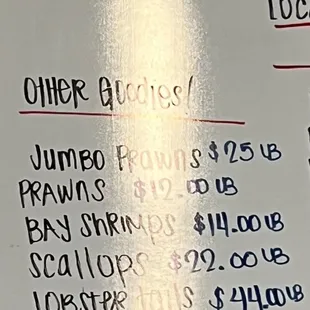 LOC
OTHER Goodies!
Jumbo Prawns $25 LB
PRAWNS $12.00 LB
BAY Shrimps $14.00 LB
Scallops $22.00 LB
LOBSTER tails $44.00 LB